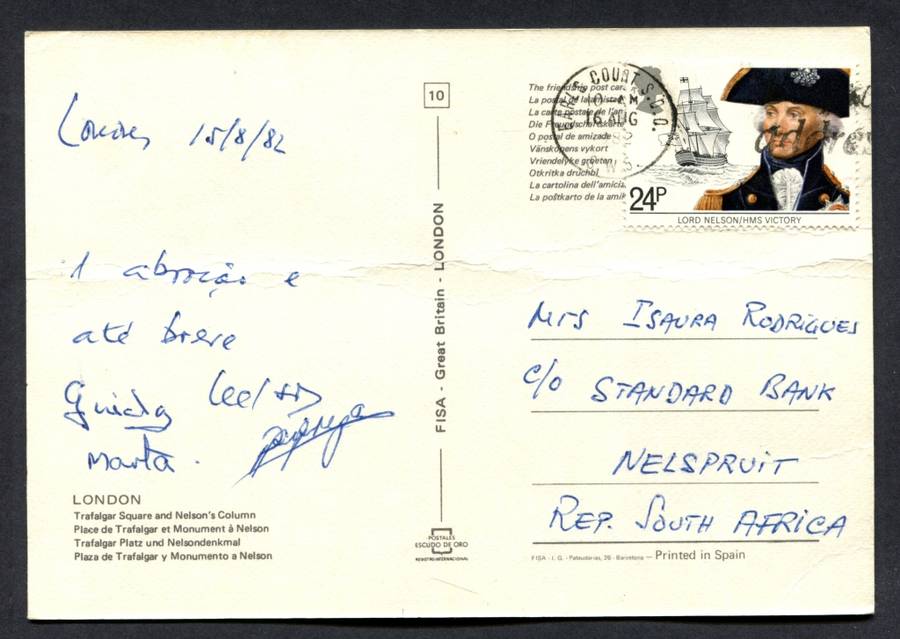 15/8/82
1 abração e
até breve
Guida
Marta.
LONDON
Trafalgar Square and Nelson's Column
Place de Trafalgar et Monument à Nelson
Trafalgar Platz und Nelsondenkmal
Plaza de Trafalgar y Monumento a Nelson
10
FISA - Great Britain - LONDON
POSTALES
ESCUDO DE ORO
REGISTRO INTERNACIONAL
The friendship post car
La postal de la amistad
La carte postale de l'am
Die Freundschaftskarte
O postal de amizade
Vänskapens vykort
Vriendelyke groeten
Otkritka druchbl
La cartolina dell'amiciz
La poŝtkarto de la amik
EARLS COURT S.D.O.
10 - AM
16 AUG
S.W.5
24P
LORD NELSON/HMS VICTORY
Mrs ISAURA RODRIGUES
c/o STANDARD BANK
NELSPRUIT
REP. SOUTH AFRICA
FISA - I. G. - Palaudarias, 26 - Barcelona — Printed in Spain